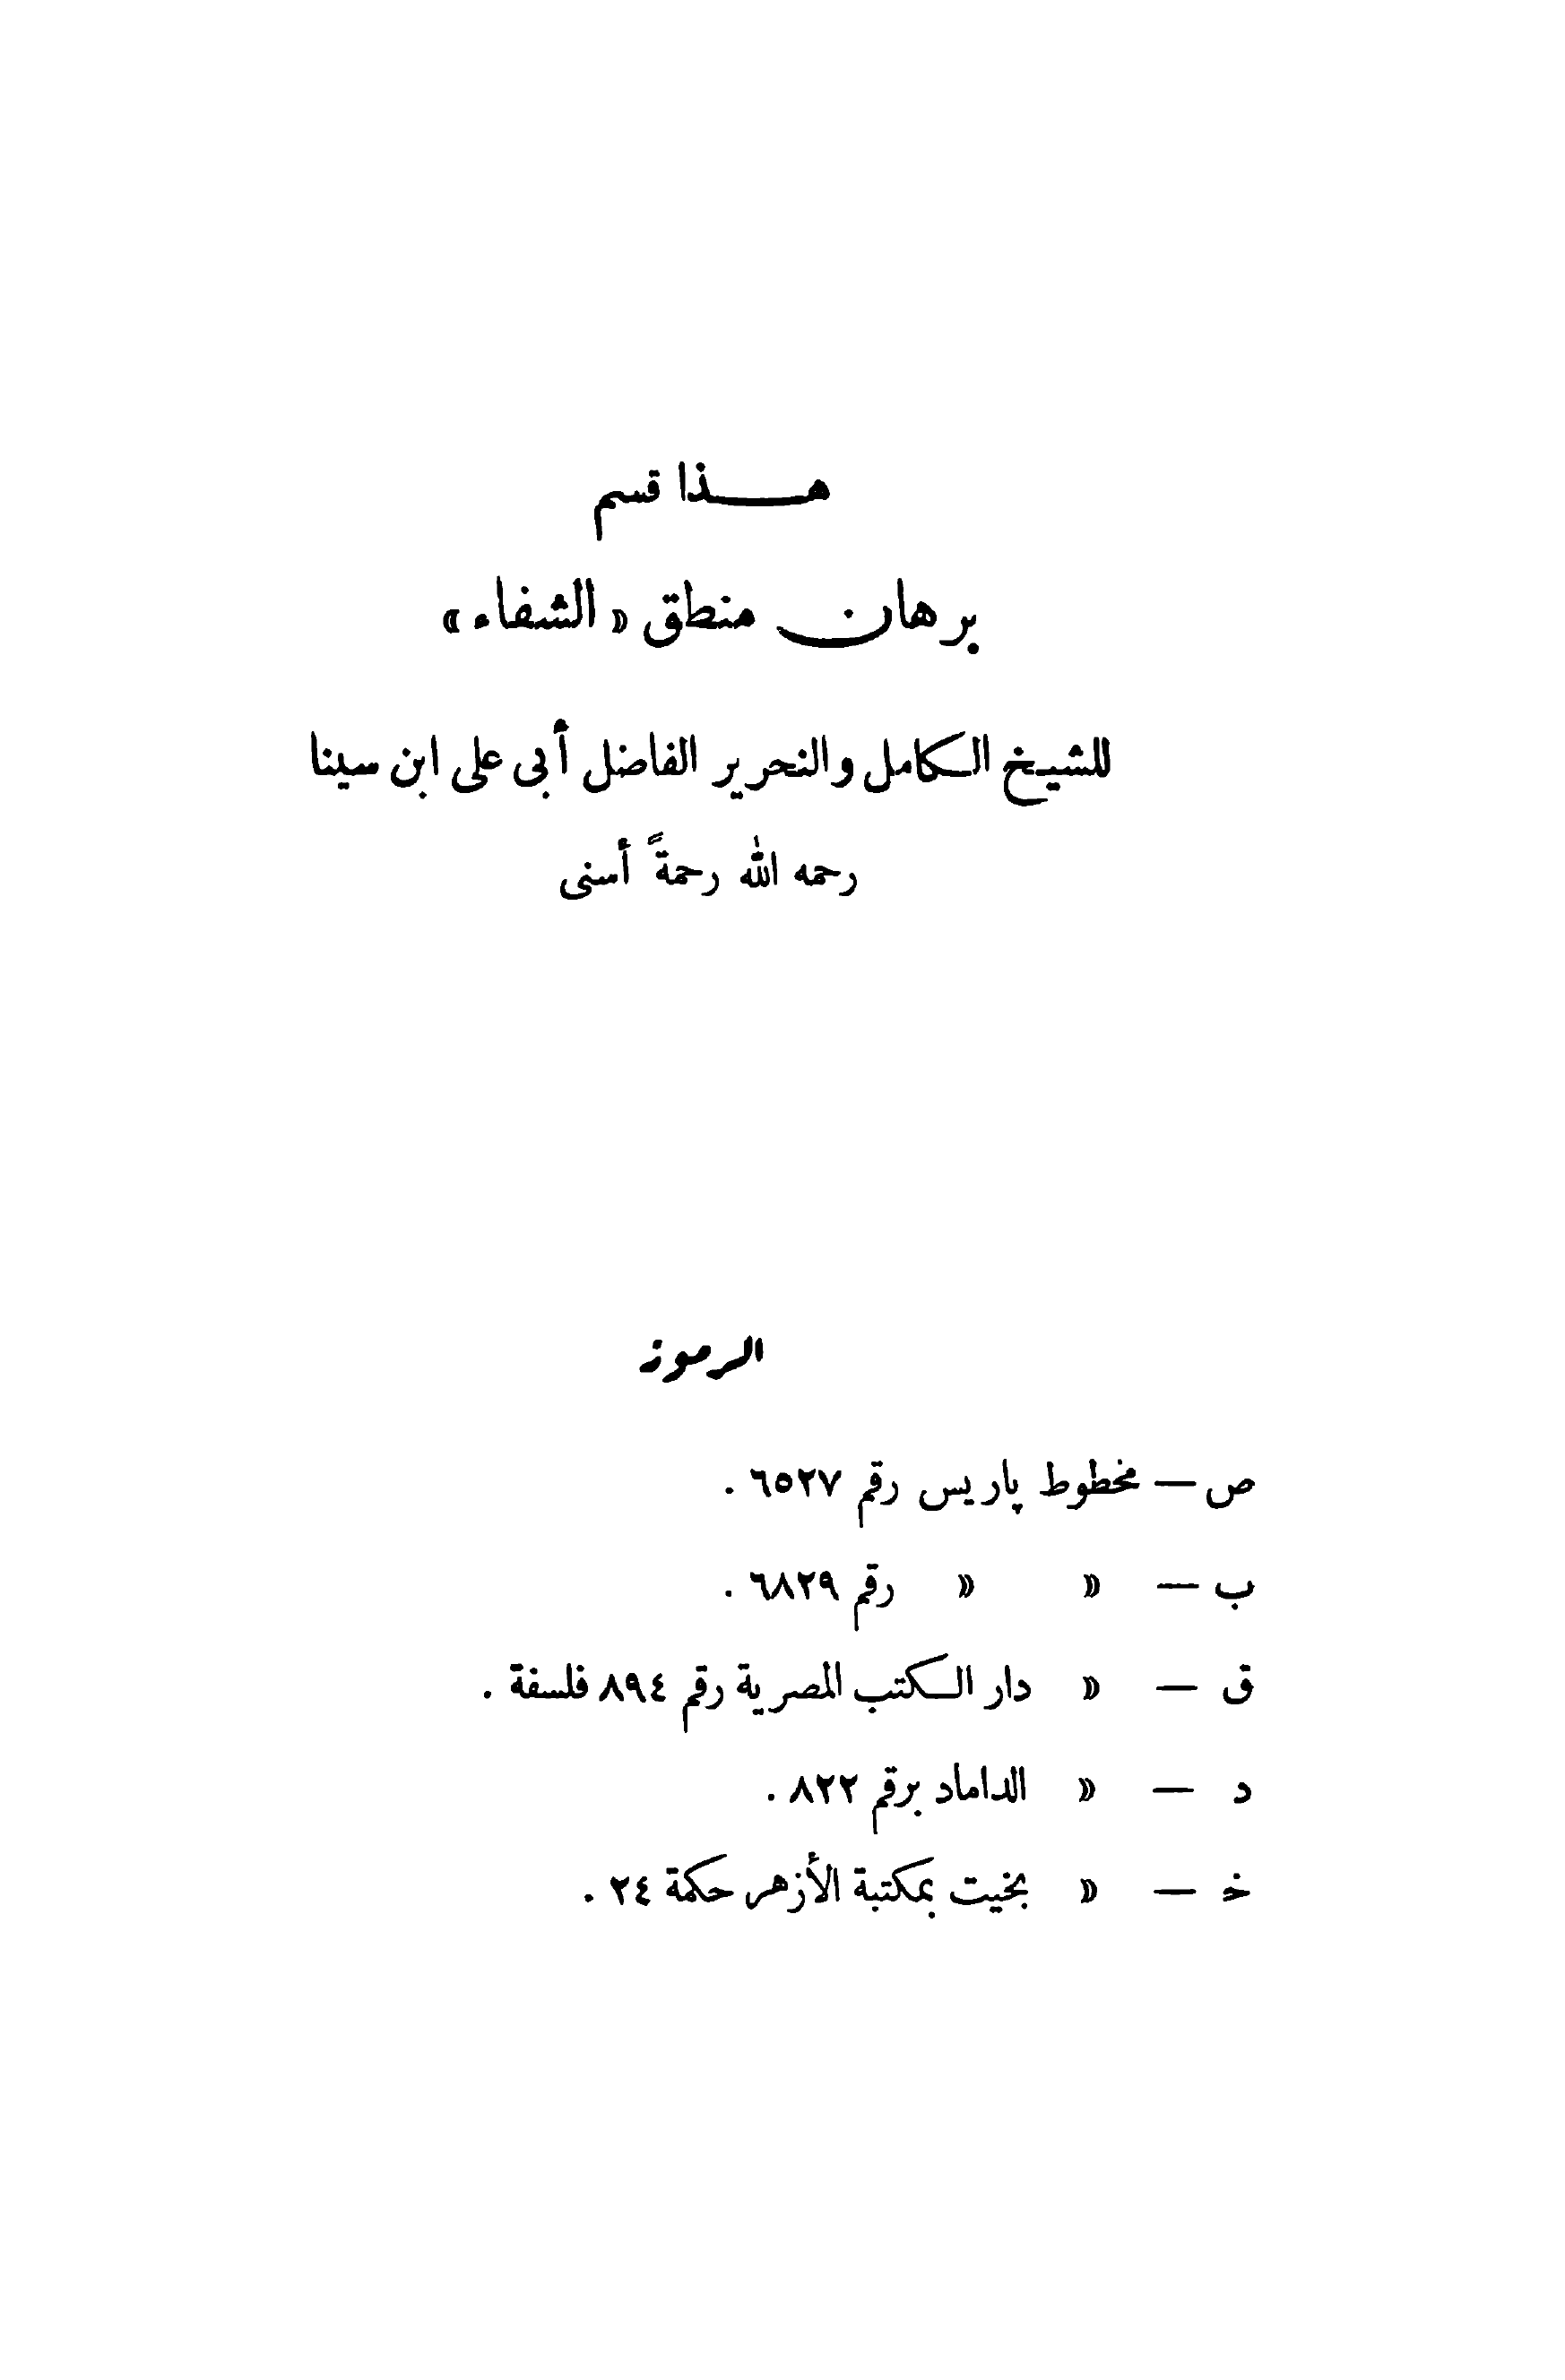 هذا قسم
برهان منطق «الشفاء»
للشيخ الكامل والنحرير الفاضل أبى على ابن سينا
رحمه الله رحمةً أسنى
الرموز
ص — مخطوط پاريس رقم ٦٥٢٧ .
ب — » » رقم ٦٨٢٩ .
ق — » دار الكتب المصرية رقم ٨٩٤ فلسفة .
د — » الداماد برقم ٨٢٢ .
خ — » بخيت بمكتبة الأزهر حكمة ٢٤ .